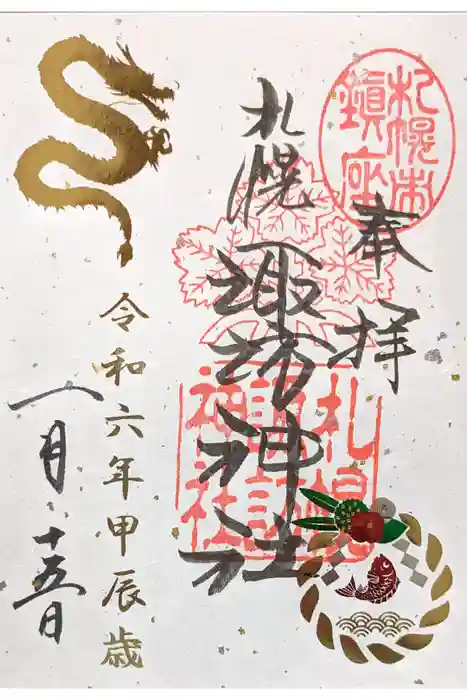 札幌市
鎮座
奉拝
札幌
諏訪神社
札幌
諏訪
神社
令和六年甲辰歳
一月十五日